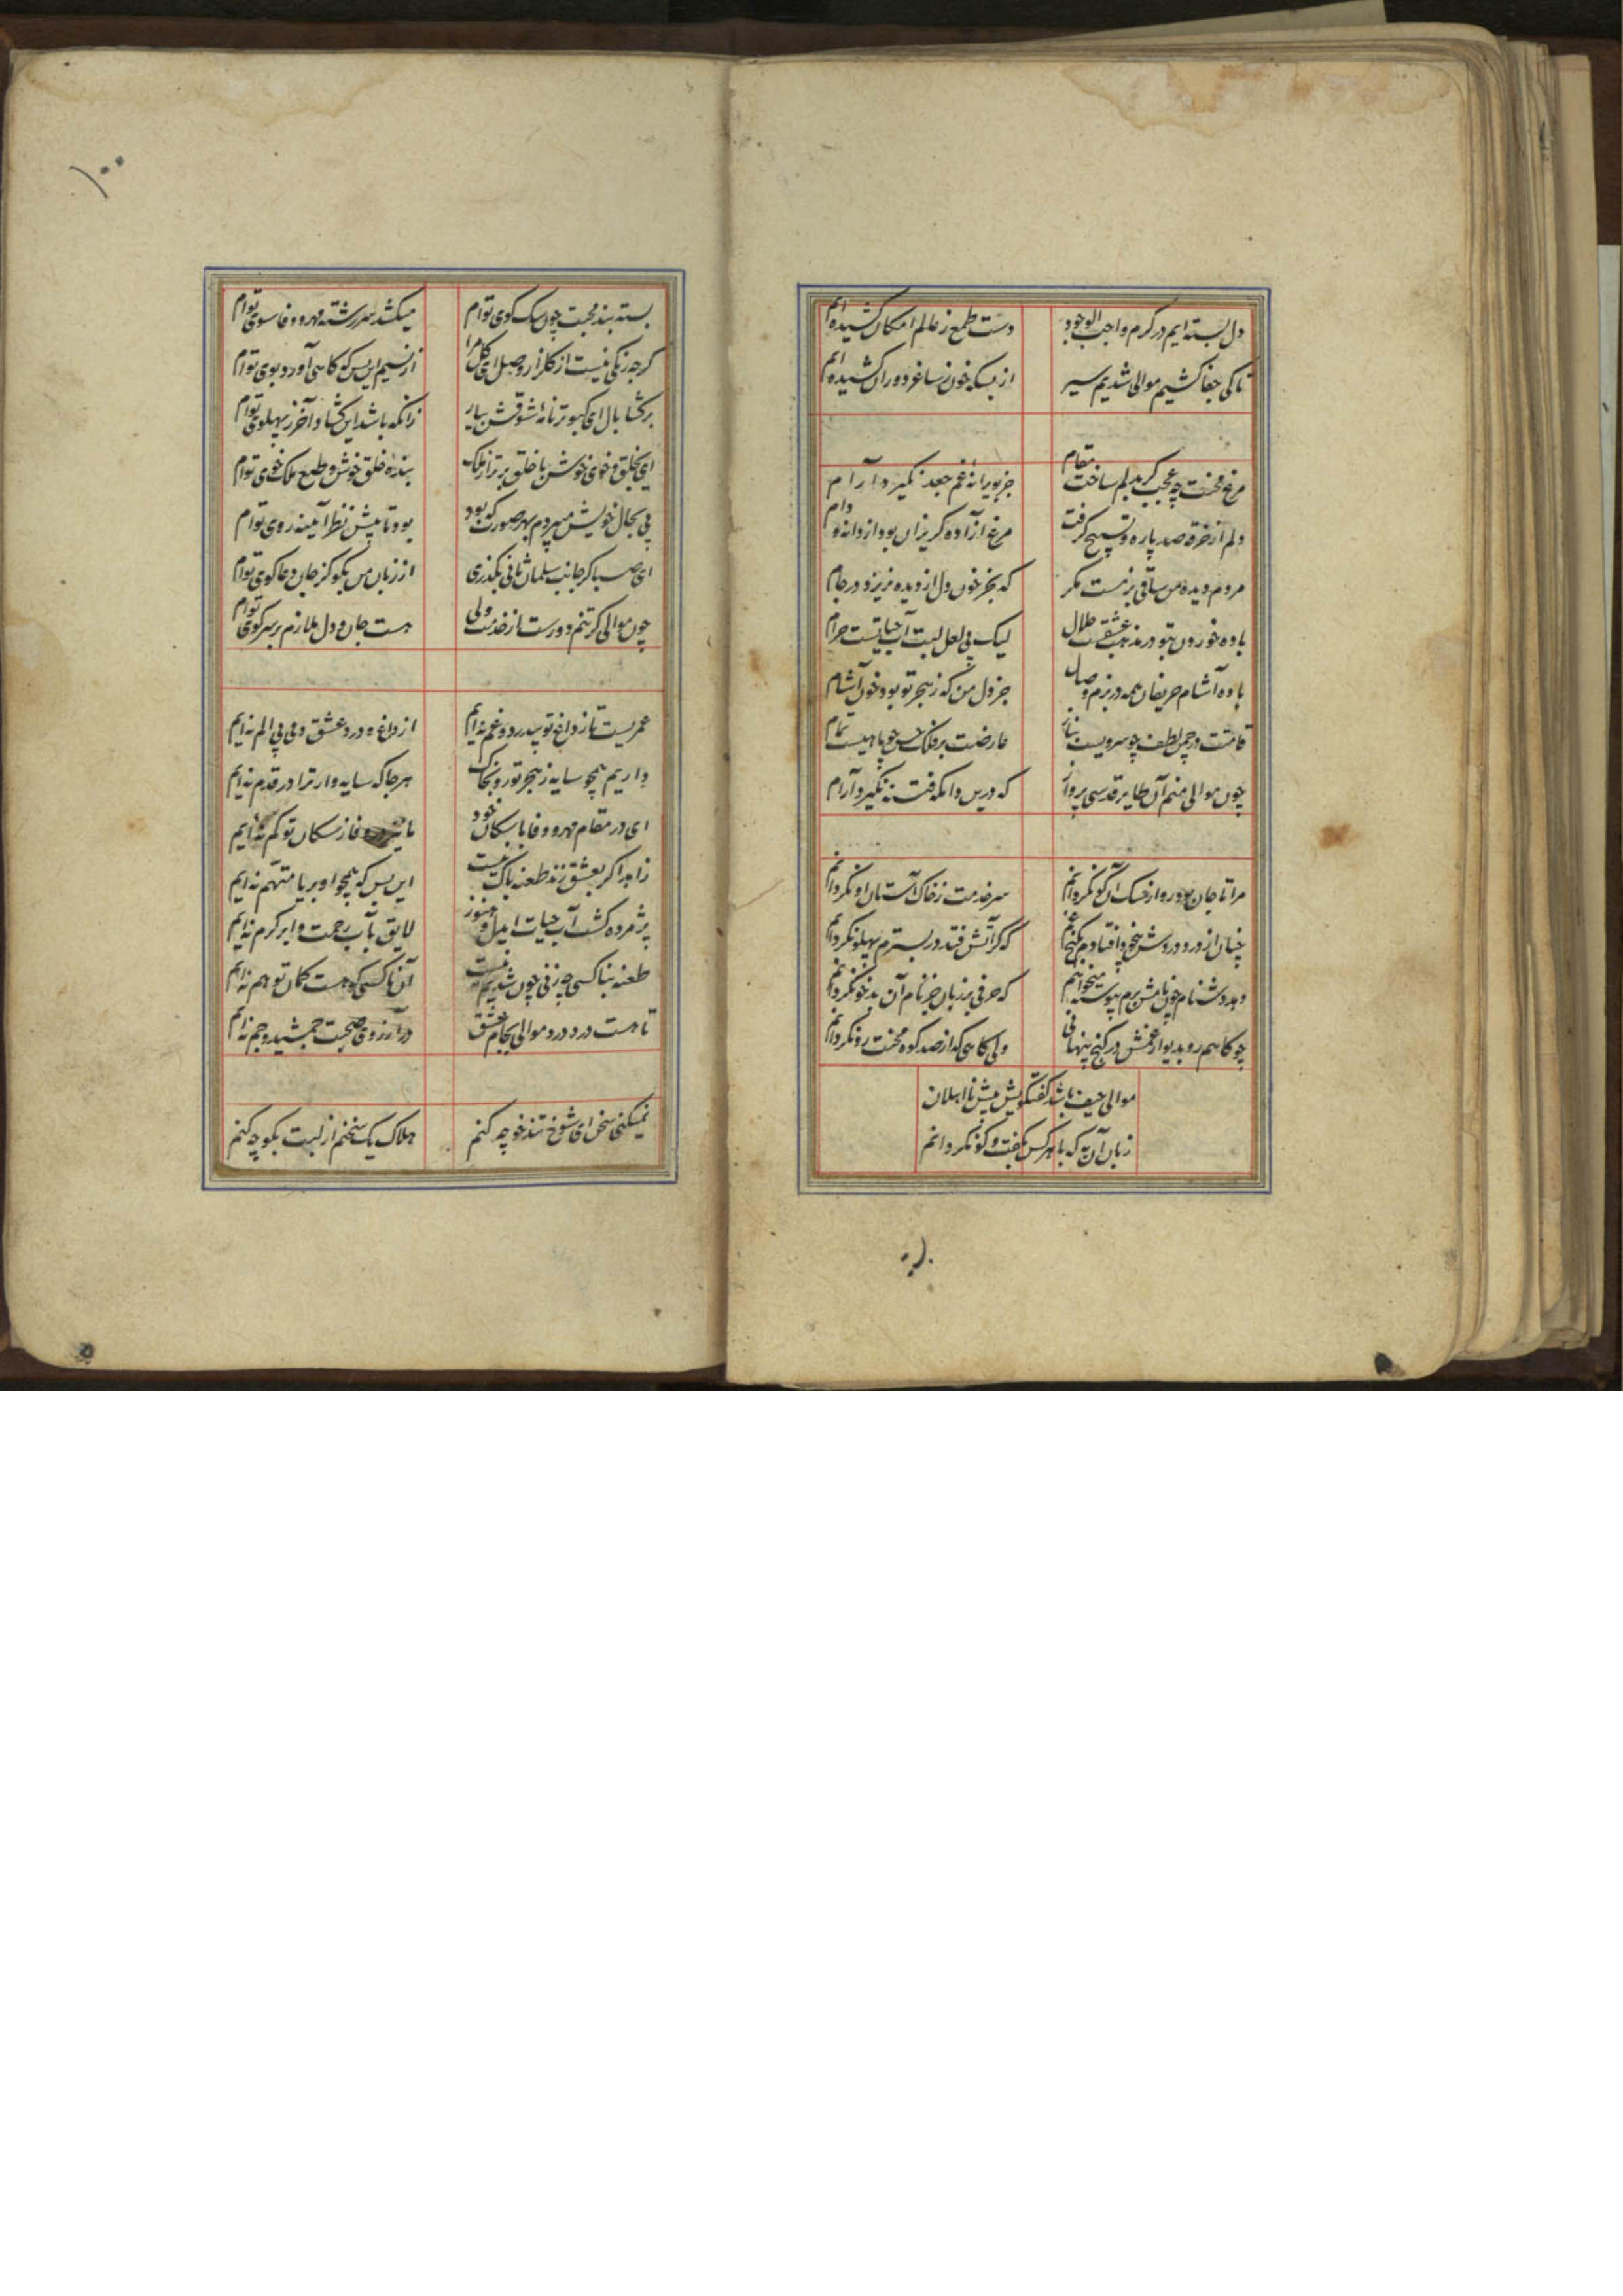 دل بسته ایم در کرم واجب الوجود دست طمع ز عالم امکان کشیده ایم
تا کی جفا کشیم موالی شدیم سیر از بسکه خون ز ساغر دوران کشیده ایم
مرغ محنت چه عجب کر بدلم ساخت مقام جز بویرانهٔ غم جغد نکیرد آرام
دلم از خرقهٔ صد پاره و تسبیح کرفت مرغ ازاده کریزان بود از دانه و دام
مردم دیده من ساقی بزمست مکر که بجز خون دل از دیده نریزد در جام
باده خوردن بتو در مذهب عشقست حلال لیک بی لعل لبت آب حیاتست حرام
باده آشام حریفان همه در بزم وصال جز دل من که ز هجر تو بود خون آشام
قامتت در چمن لطف چو سرویست بناز عارضت بر فلک حسن چو ماهیست تمام
چون موالی منم آن طایر قدسی پرواز که درین دامکه فتنه نکیرد آرام
مرا تا جان بود رو از سک آن کو نکردانم سر خدمت ز خاک آستان او نکردانم
چنان از درد دوریش بیخود افتادم بکنج غم که کر آتش فتد در بسترم پهلو نکردانم
دهد دشنام چون نامش برم پیوسته میخواهم که حرفی بر زبان جز نام آن بدخو نکردانم
چو کاهم رو بدیوار غمش در کنج پنهانی ولی کاهی که از صد کوه محنت رو نکردانم
موالی حیف باشد کفتکویش پیش نااهلان
زبان آن به که با هر کس بکفت و کو نکردانم
۱۰۰
بسته بند محبت چون سک کوی توام میکشد سررشته مهر و وفا سوی توام
کرچه رنکی نیست از کلزار وصل ای کل مرا از نسیم این بس که کاهی آورد بوی توام
برکشا بال ای کبوتر نامهٔ شوقش بیار زانکه باشد این کشاد آخر ز پهلوی توام
ای بخلق و خوی خوش با خلق برتر از ملک بنده خلق خوش و طبع ملک خوی توام
پی بحال خویش میبردم بهر صورت که بود بود تا پیش نظر آیینه روی توام
ای صبا کر جانب سلمان ثانی بکذری از زبان من بکو کز جان دعا کوی توام
چون موالی کر تنم دورست از خدمت ولی هست جان و دل ملازم بر سر کوی توام
عمریست تا ز داغ تو بیدرد و غم نه ایم از داغ و درد عشق دمی بی الم نه ایم
داریم همچو سایه ز هجر تو رو بخاک هر جا که سایه وار ترا در قدم نه ایم
ای در مقام مهر و وفا با سکان خود ما وفا ز سکان تو کم نه ایم
زاهد اکر بعشق زند طعنه باک نیست این بس که همچو او بریا متهم نه ایم
پژمرده کشت آب حیات امید و هنوز لایق بآب رحمت و ابر کرم نه ایم
طعنه بناکسی چه زنی چون شدیم نیست آن ناکسی که هست کمان تو هم نه ایم
تا هست درد درد موالی بجام عشق در آرزوی صحبت جمشید و جم نه ایم
نمیکنی سخن ای شوخ تندخو چه کنم هلاک یک سخنم از لبت بکو چه کنم